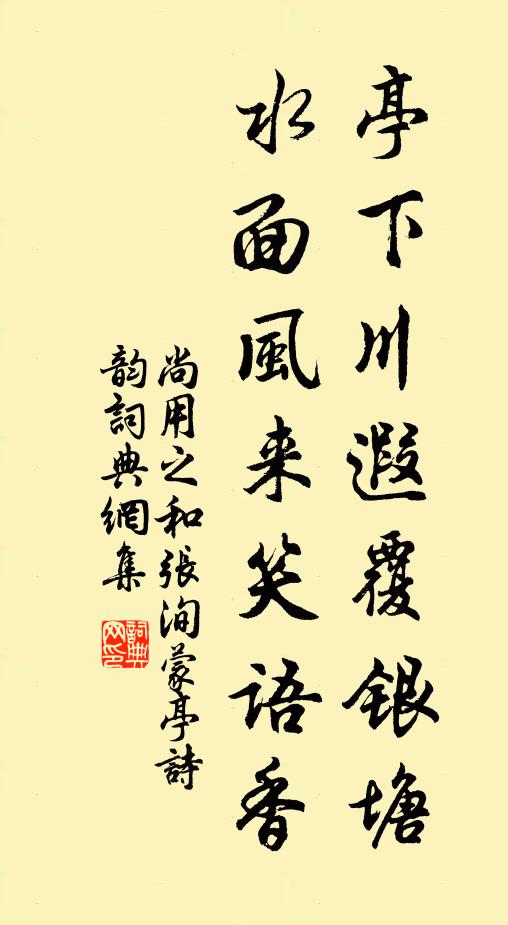 亭下川遐覆銀塘
水面風来笑语香
尚用之和張洵蒙亭詩
韵詞典網集
詞典网印